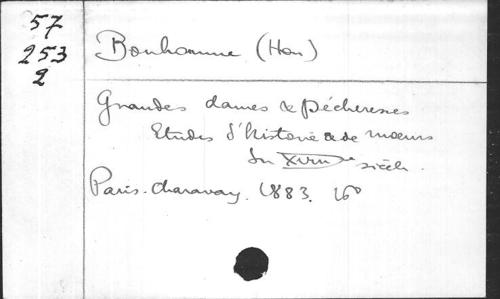 57
253
2
Bonhomme (Hon)
Grandes dames & Pécheresses
Etudes d'histoire & de mœurs
du XVIIIe siècle.
Paris. Charavay. 1883. 16º